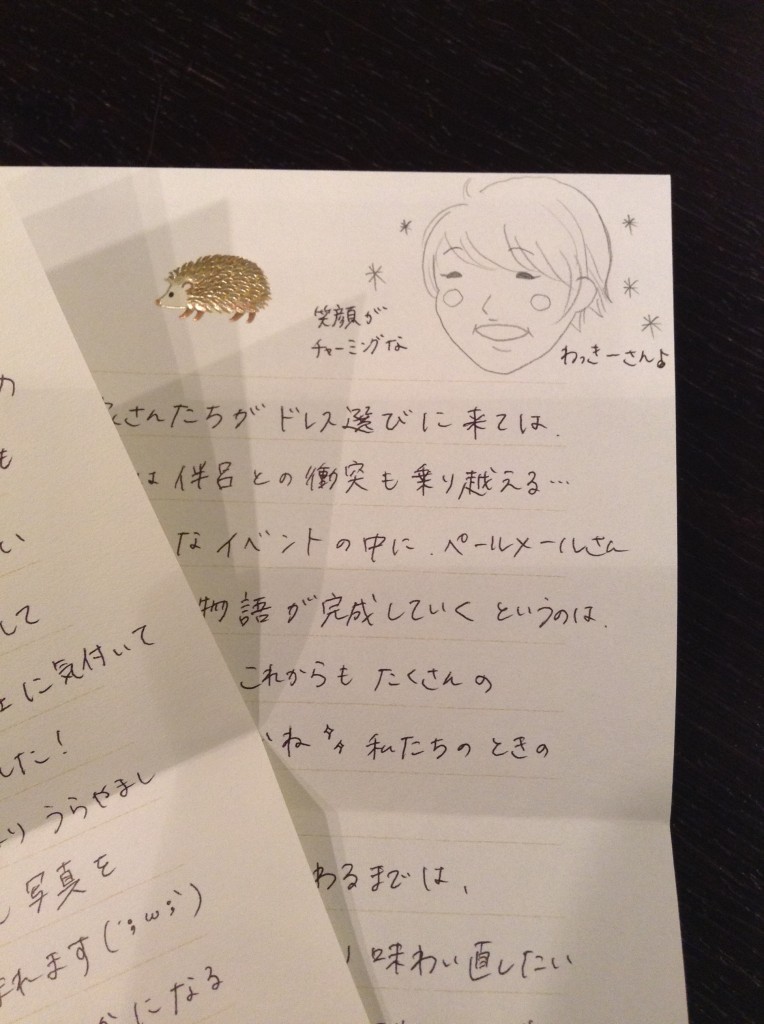 笑顔が
チャーミングな
わっきーさんよ
さんたちがドレス選びに来ては、
は伴侶との衝突も乗り越える…
なイベントの中に、ペールメールさん
物語が完成していくというのは、
これからもたくさんの
いね 私たちのときの
わるまでは、
味わい直したい
の
も
い
して
に気付いて
した!
り うらやまし
写真を
れます(´;ω;`)
になる